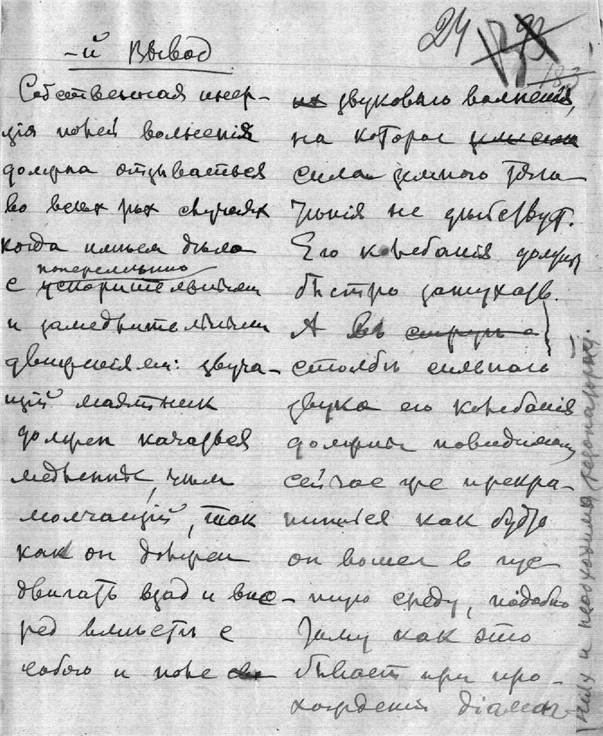 24
-й Вывод
Собственная инер-
ция полей волнения
должна отзываться
во всех тех случаях
когда имеем дело
поперемѣнно
с ускорительным
и замедлительным
движенiем: звуча-
щий маятник
должен качаться
медленнѣе, чѣм
молчащий, так
как он должен
двигать взад и впе-
ред вместѣ с
собою и поле
звукового волненiя,
на которое
сила земного тяго-
тѣнiя не дѣйствует.
Его колебанiя должны
быстро затухать.
А въ
столбѣ сильного
звука его колебанiя
должны повидимому
сейчас же прекра-
титься как будто
он вошел в гус-
тую среду, подобно
тому как это
бывает при про-
хожденiи дiамаг-
них и необходимая